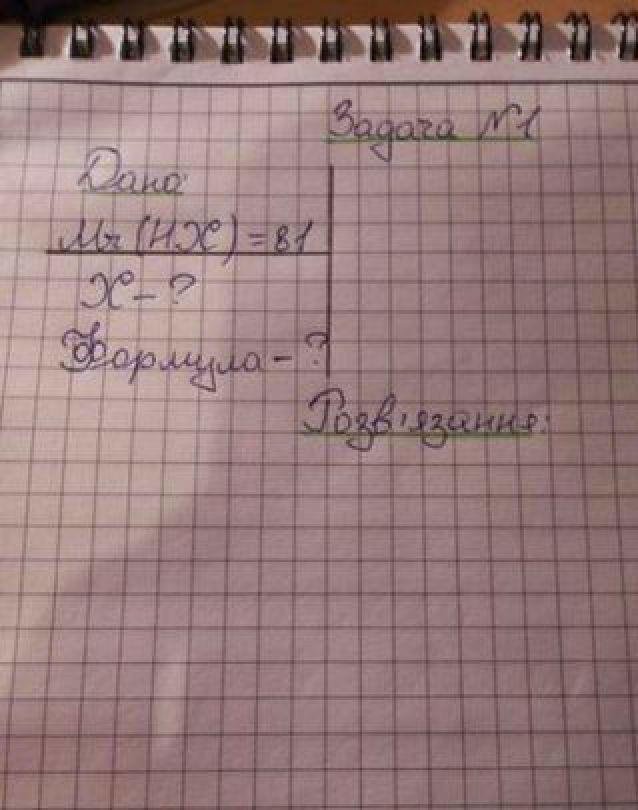 Задача №1
Дано:
Mr (HX) = 81
X - ?
Формула - ?
Розв'язання: